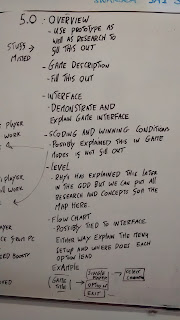 5.0 : OVERVIEW
- USE PROTOTYPE AS
WELL AS RESEARCH TO
FILL THIS OUT
STUFF
MISSED
- GAME DESCRIPTION
- FILL THIS OUT
- INTERFACE
- DEMONSTRATE AND
EXPLAIN GAME INTERFACE
PLAYER
WORK
- SCORING AND WINNING CONDITIONS
- POSSIBLY EXPLAINED THIS IN GAME
MODES IS NOT FILL OUT
- LEVEL
- RHYS HAS EXPLAINED THIS LATER
IN THE GDD BUT WE CAN PUT ALL
RESEARCH AND CONCEPTS FOR THE
MAP HERE.
PLAYER
WORK
- FLOW CHART
- POSSIBLY TIED TO INTERFACE.
EITHER WAY EXPLAIN THE MENU
SETUP AND WHERE DOES EACH
OPTION LEAD
FROM PC
EXAMPLE
GAME
TITLE
SINGLE
OPTION
EXIT
SELECT